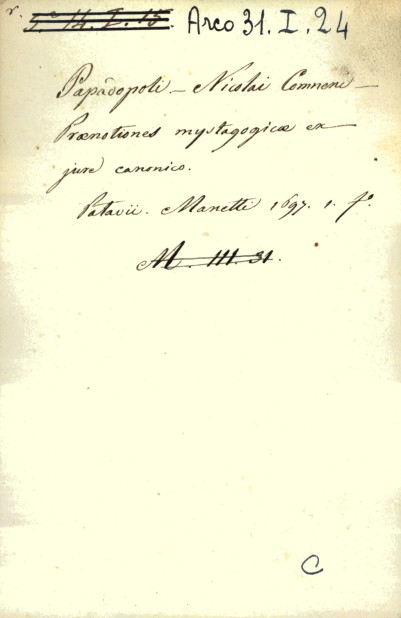 r. 5.ª 14. I. 15. Arco 31. I. 24
Papadopoli – Nicolai Comneni –
Prænotiones mystagogicæ ex
jure canonico.
Patavii. Manetti 1697. 1. fº.
M. III. 31.
C